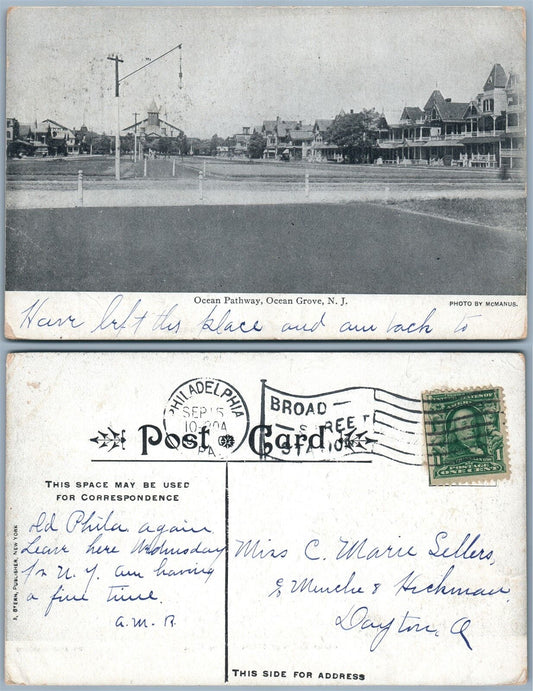 Ocean Pathway, Ocean Grove, N. J.
PHOTO BY McMANUS.
Have left this place and am back to
PHILADELPHIA
SEP 15
10-30A
PA.
BROAD
STREET
STATION
Post Card
POSTAGE
ONE CENT
THIS SPACE MAY BE USED
FOR CORRESPONDENCE
old Phila. again
Leave here Wednesday
for N. Y. am having
a fine time.
a. m. R.
Miss C. Marie Sellers,
Hickman
Dayton, O
THIS SIDE FOR ADDRESS
STERN, PUBLISHER, NEW YORK